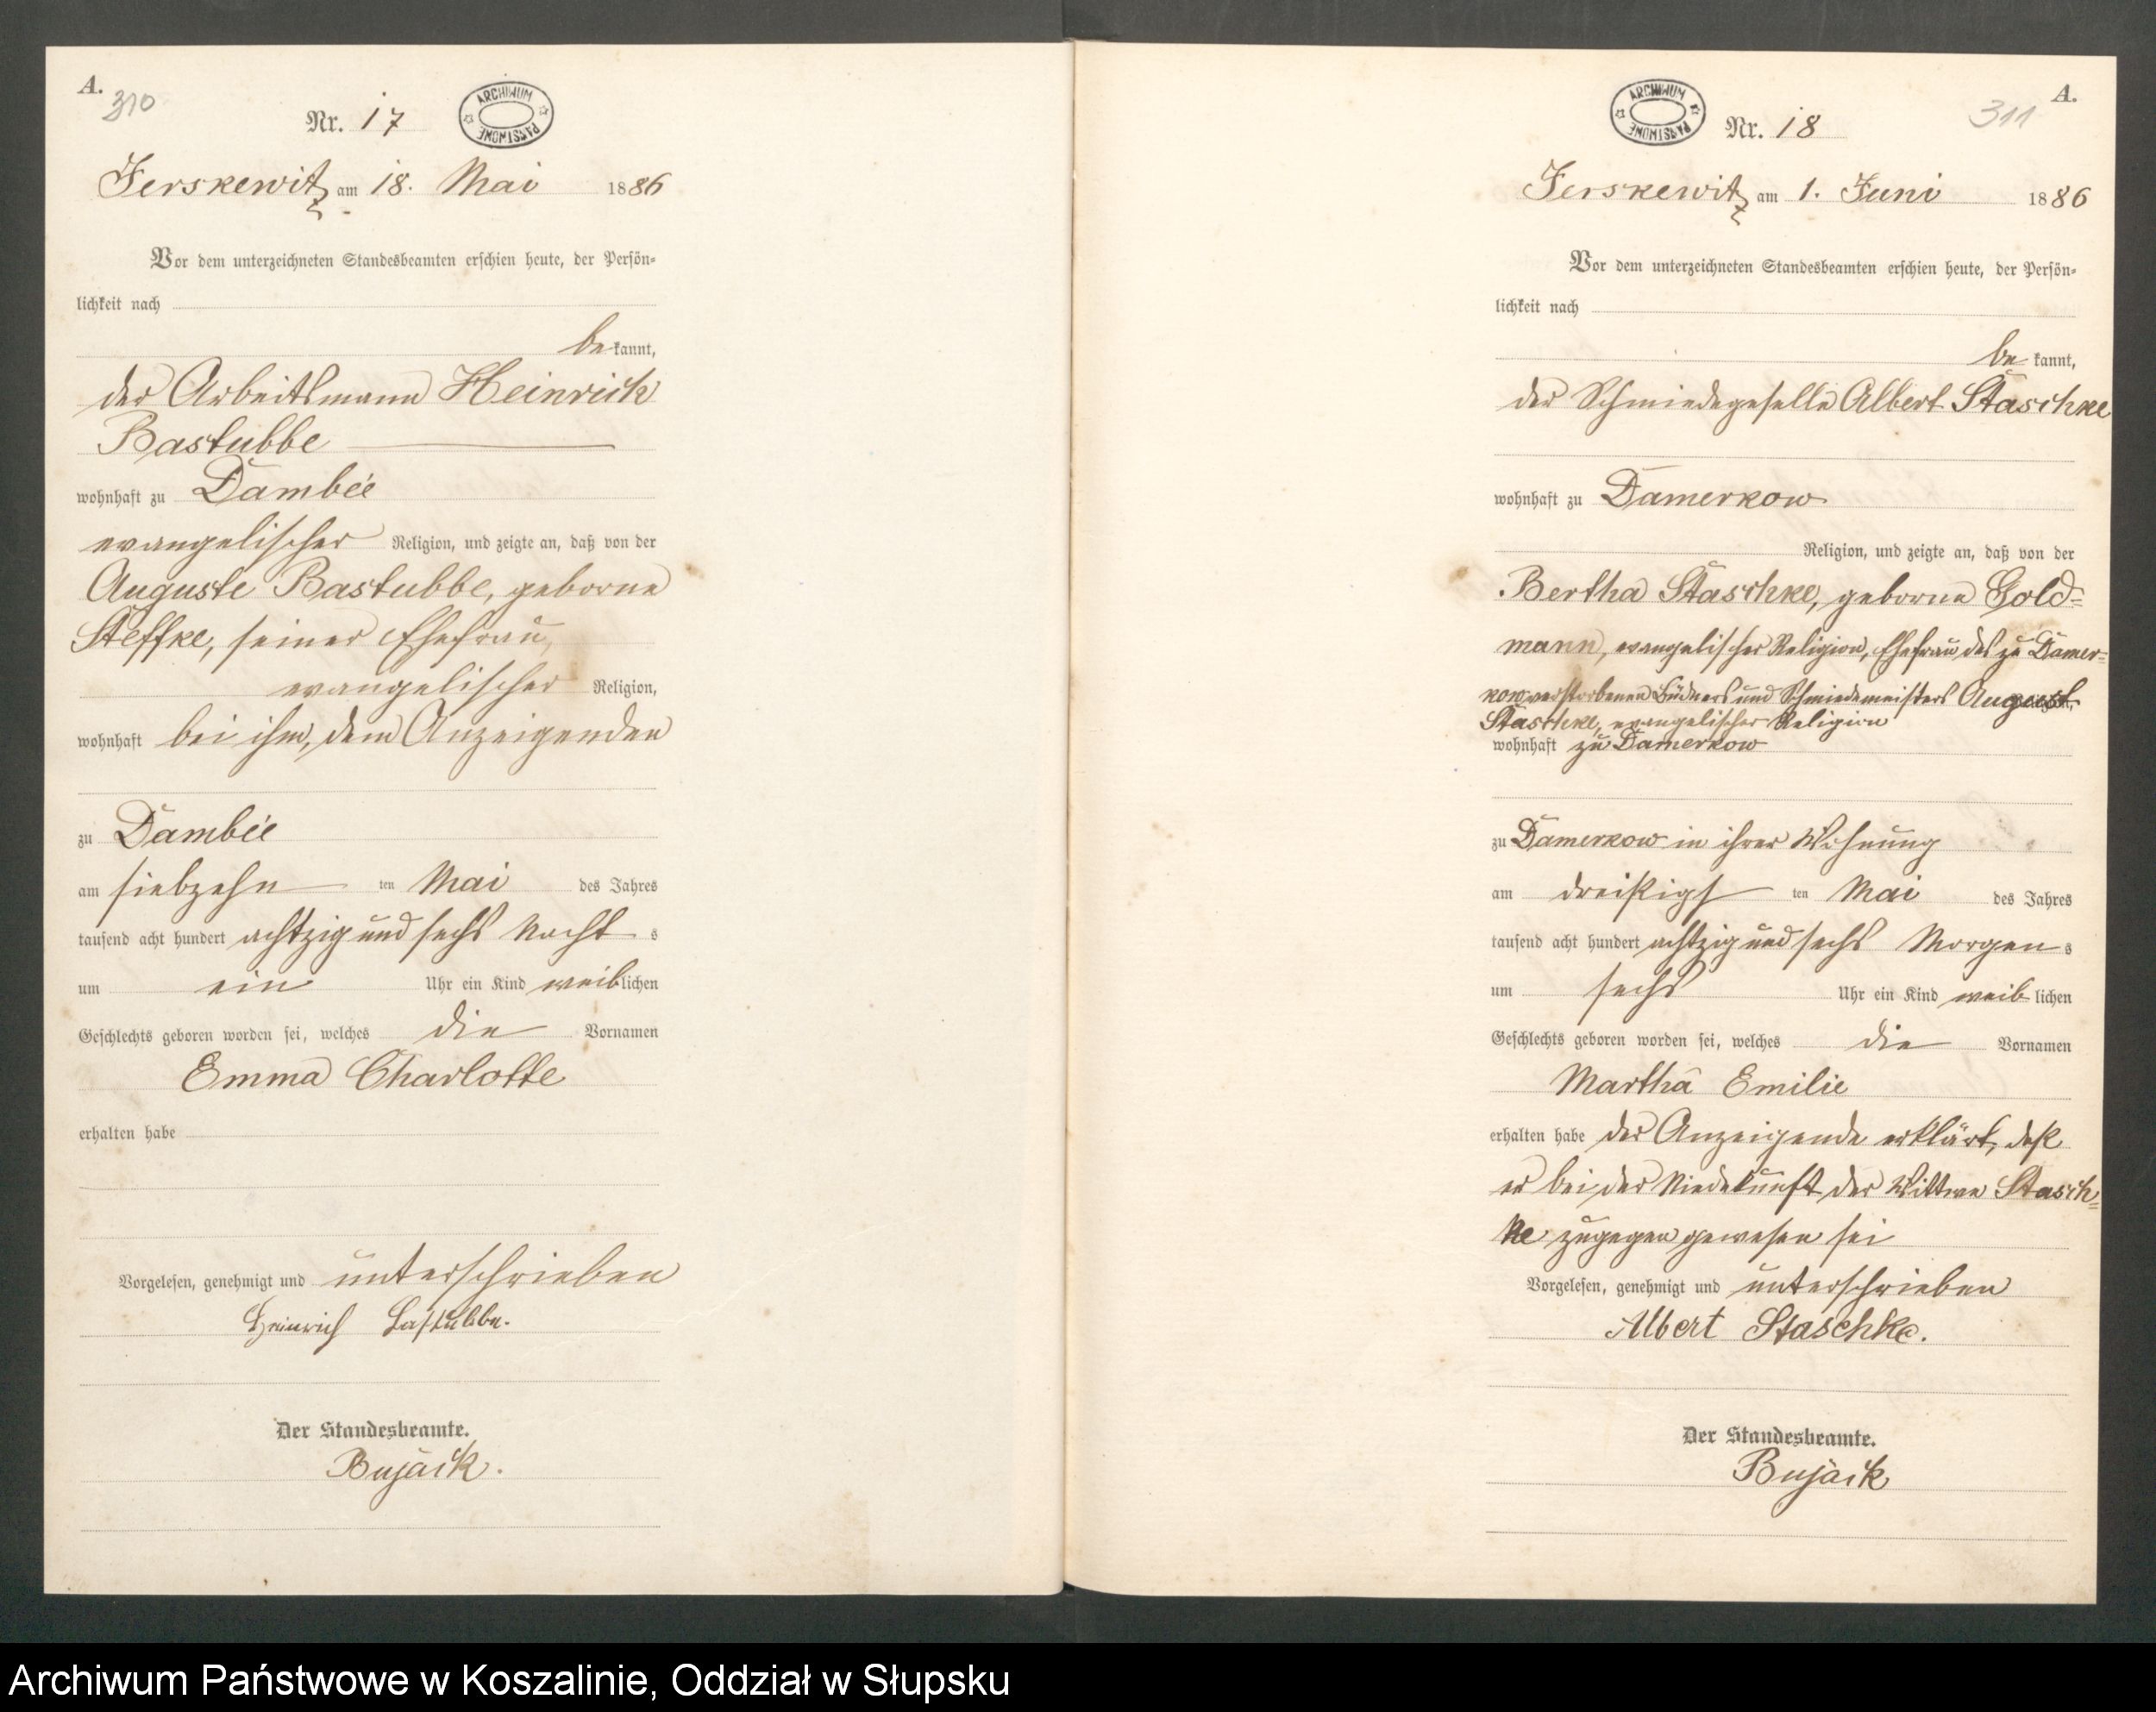 A.
310
Nr. 17
ARCHIWUM PAŃSTWOWE
Jerskewitz am 18. Mai 1886
Vor dem unterzeichneten Standesbeamten erschien heute, der Persön-
lichkeit nach
bekannt,
der Arbeitsmann Heinrich
Bastubbe
wohnhaft zu Dambee
evangelischer Religion, und zeigte an, daß von der
Auguste Bastubbe, geborne
Steffke, seiner Ehefrau,
evangelischer Religion,
wohnhaft bei ihm, dem Anzeigenden
zu Dambee
am siebzehn ten Mai des Jahres
tausend acht hundert achtzig und sechs Nacht s
um ein Uhr ein Kind weiblichen
Geschlechts geboren worden sei, welches die Vornamen
Emma Charlotte
erhalten habe
Vorgelesen, genehmigt und unterschrieben
Heinrich Bastubbe.
Der Standesbeamte.
Bujack.
A.
311
ARCHIWUM PAŃSTWOWE
Nr. 18
Jerskewitz am 1. Juni 1886
Vor dem unterzeichneten Standesbeamten erschien heute, der Persön-
lichkeit nach
be kannt,
der Schmiedegeselle Albert Staschke
wohnhaft zu Damerkow
Religion, und zeigte an, daß von der
Bertha Staschke, geborne Gold-
mann, evangelischer Religion, Ehefrau des zu Damer-
kow verstorbenen Büdners und Schmiedemeisters August
Staschke, evangelischer Religion
wohnhaft zu Damerkow
zu Damerkow in ihrer Wohnung
am dreißigs ten Mai des Jahres
tausend acht hundert achtzig und sechs Morgen s
um sechs Uhr ein Kind weib lichen
Geschlechts geboren worden sei, welches die Vornamen
Martha Emilie
erhalten habe der Anzeigende erklärt, daß
er bei der Niedekunft der Wittwe Stasch-
ke zugegen gewesen sei
Vorgelesen, genehmigt und unterschrieben
Albert Staschke.
Der Standesbeamte.
Bujack
Archiwum Państwowe w Koszalinie, Oddział w Słupsku